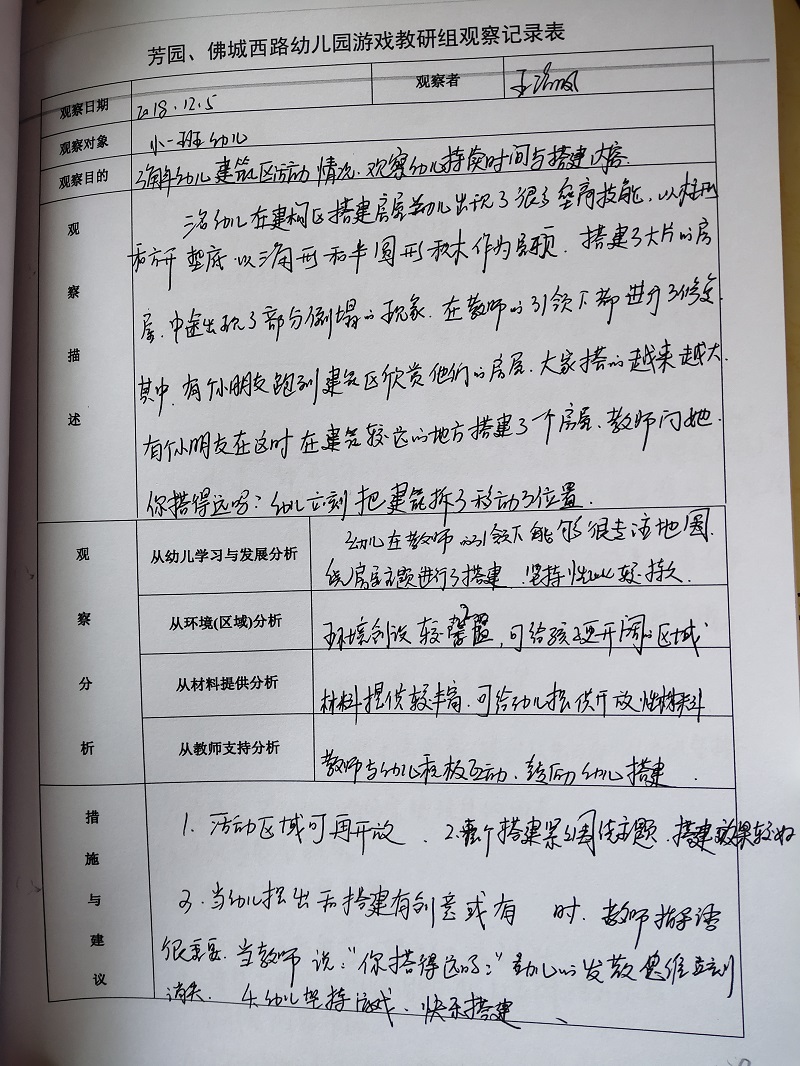 芳园、佛城西路幼儿园游戏教研组观察记录表
观察日期 2018.12.5 观察者 王
观察对象 小一班幼儿
观察目的 了解幼儿建筑区活动情况.观察幼儿持续时间与搭建内容.
观察描述
三名幼儿在建构区搭建房屋幼儿出现了很多垒高技能,以柱形
和方形垫底.以三角形和半圆形积木作为屋顶.搭建了大片的房
屋.中途出现了部分倒塌的现象.在教师的引领下都进行了修复.
其中.有个小朋友跑到建筑区欣赏他们的房屋.大家搭的越来越大.
有个小朋友在这时在建筑较远的地方搭建了一个房屋、教师问她.
你搭得远吗?幼儿立刻把建筑拆了移动了位置.
观察分析
从幼儿学习与发展分析 幼儿在教师的引领下能够很专注地围
绕房屋主题进行了搭建.坚持性较持久.
从环境(区域)分析 环境创设较,可给孩子更开阔的区域
从材料提供分析 材料提供较丰富.可给幼儿提供开放性材料
从教师支持分析 教师与幼儿积极互动、鼓励幼儿搭建.
措施与建议
1.活动区域可再开放、2.整个搭建紧紧围绕主题.搭建效果较好
3.当幼儿提出和搭建有创意或有 时.教师指导语
很重要.当教师说:“你搭得远吗?”幼儿的发散思维立刻
消失. 4.幼儿坚持游戏、快乐搭建、